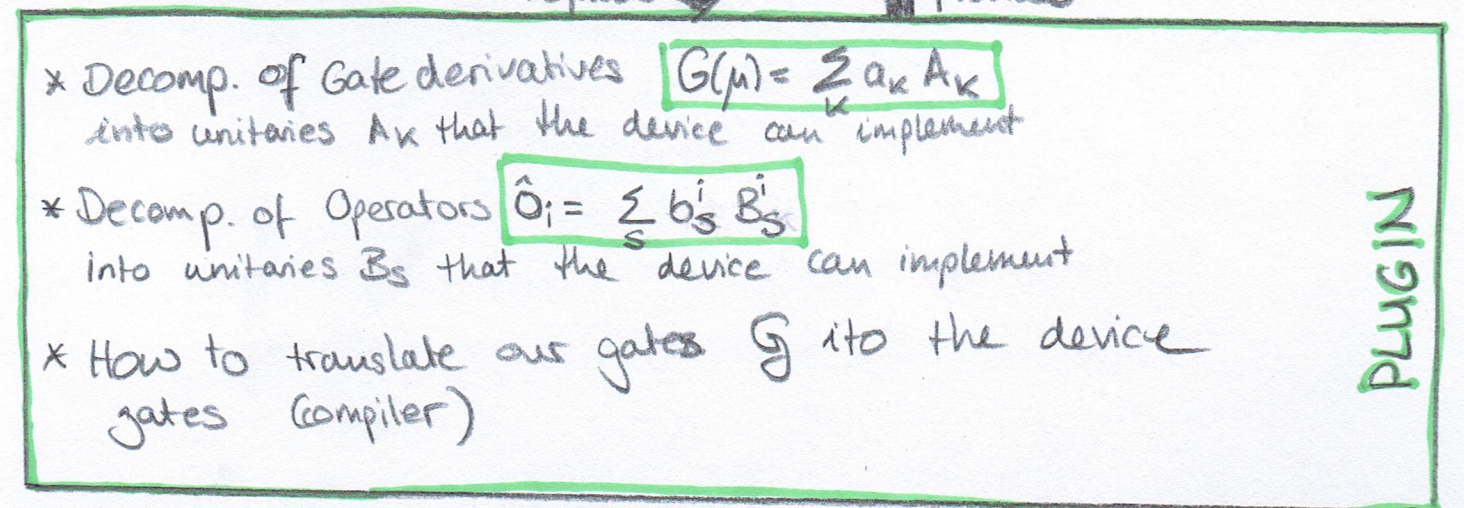 * Decomp. of Gate derivatives G(μ) = Σ_k a_k A_k
into unitaries A_k that the device can implement
* Decomp. of Operators Ô_i = Σ_s b_s^i B_s^i
into unitaries B_s that the device can implement
* How to translate our gates G ito the device
gates (compiler)
PLUGIN